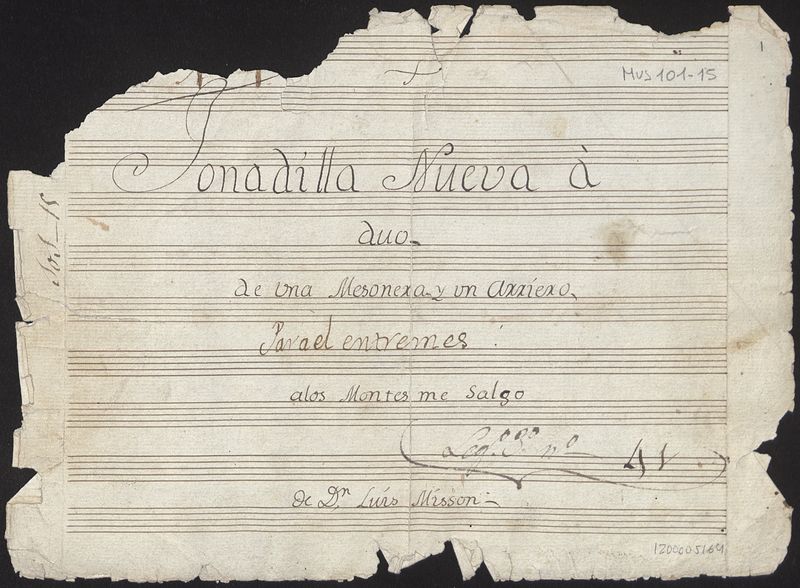 1
MUS 101-15
Tonadilla Nueva à
duo
de una Mesonera y un Arriero
Para el entremes :
alos Montes me Salgo
Leg.º 3º nº 41
de Dn Luis Misson
1200005164